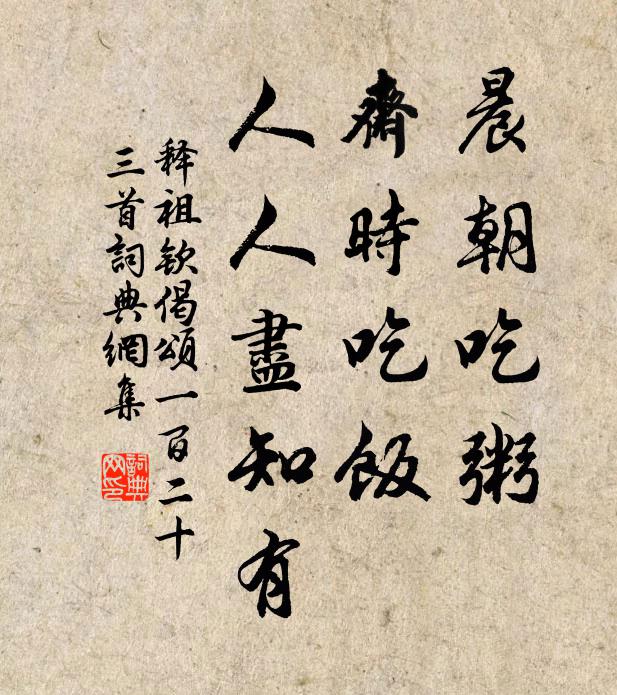 晨朝吃粥
齋時吃飯
人人盡知有
释祖欽偈頌一百二十
三首詞典網集
詞典網印